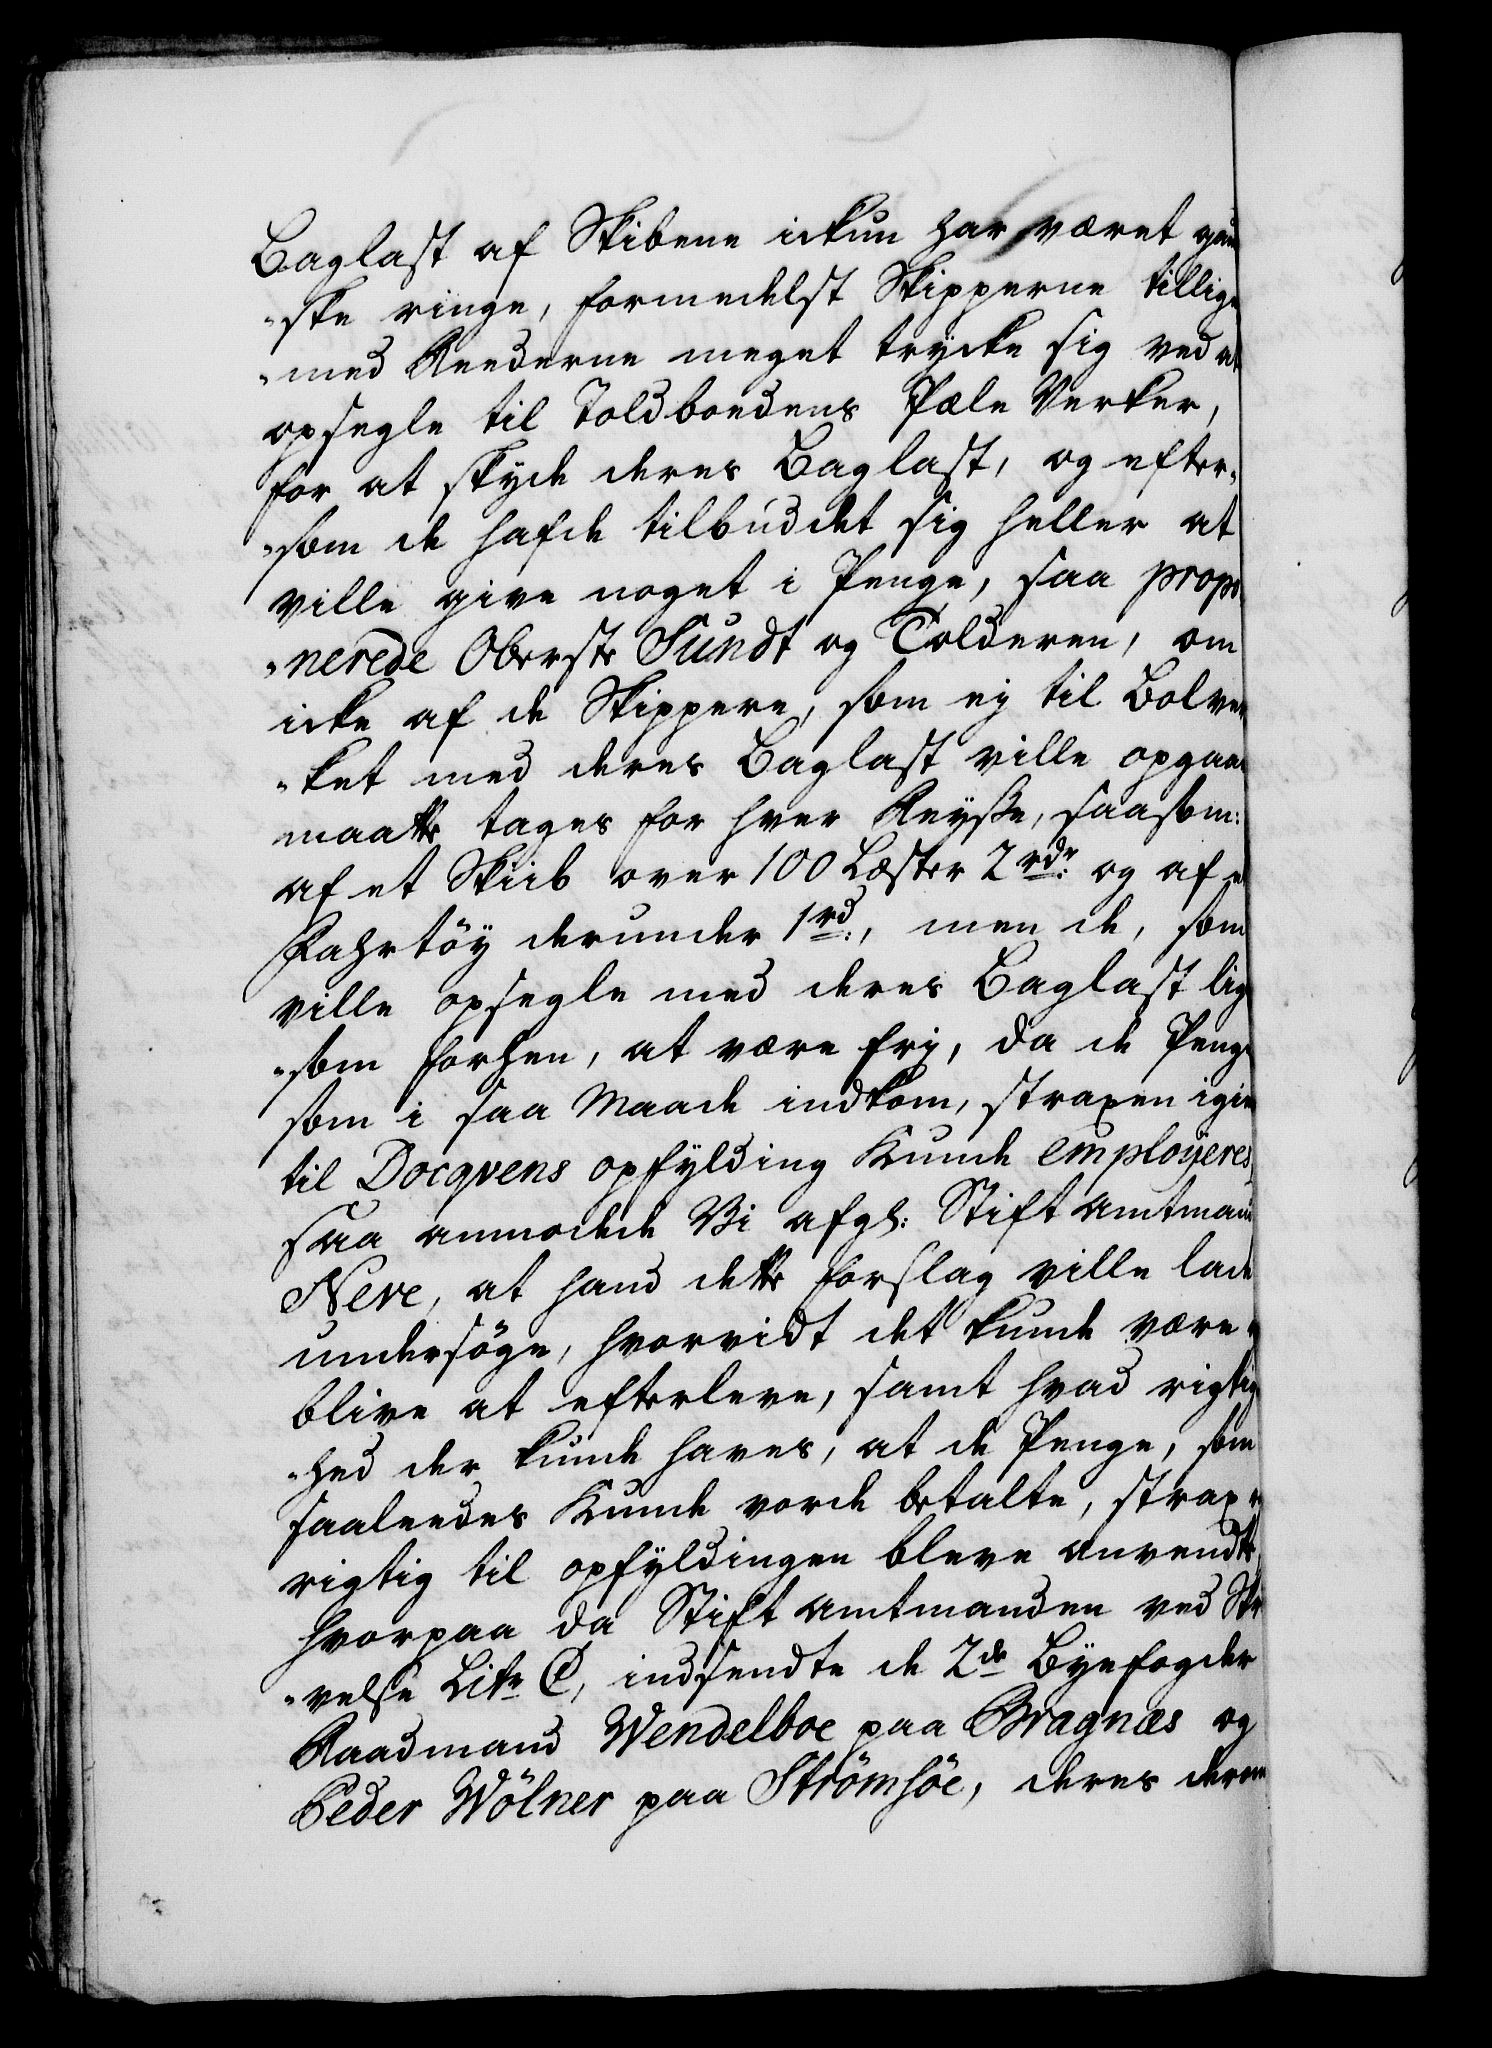 Baglast af Skibene ickun har været gan
-ske ringe, formedelst Skipperne tillige
-med Reederne meget trycke sig ved at
opsegle til Toldboedens Pæle Verker,
for at skyde deres Baglast, og efter-
-som de hafde tilbuddet sig heller at
ville give noget i Penge, saa propo
-nerede Oberste Sundt og Tolderen, om
icke af de Skippere, som ej til Bolver
-ket med deres Baglast ville opgaae
maatte tages for hver Reysse, saasom:
af et Skiib over 100 Læster 2 rdr: og af et
Fahrtöy derunder 1 rd:, men de, som
ville opsegle med deres Baglast lige
-som forhen, at være frj, da de Penge
som i saa Maade indkom, straxen igien
til Docqvens opfylding kunde employeres
saa anmodede Vi afgl: Stift amtmand
Neve, at hand dette forslag ville lade
undersöge, hvorvidt det kunde være
blive at efterleve, samt hvad rigtig
-hed der kunde haves, at de Penge, som
saaleedes kunde vorde betalte, strax
rigtig til opfyldingen bleve anvendte,
hvorpaa da Stift amtmanden ved Skri
-velse Litr C, indsendte de 2de Byefogder
Raadmand Wendelboe paa Bragnæs og
Peder Wölner paa Strömsöe, deres derom